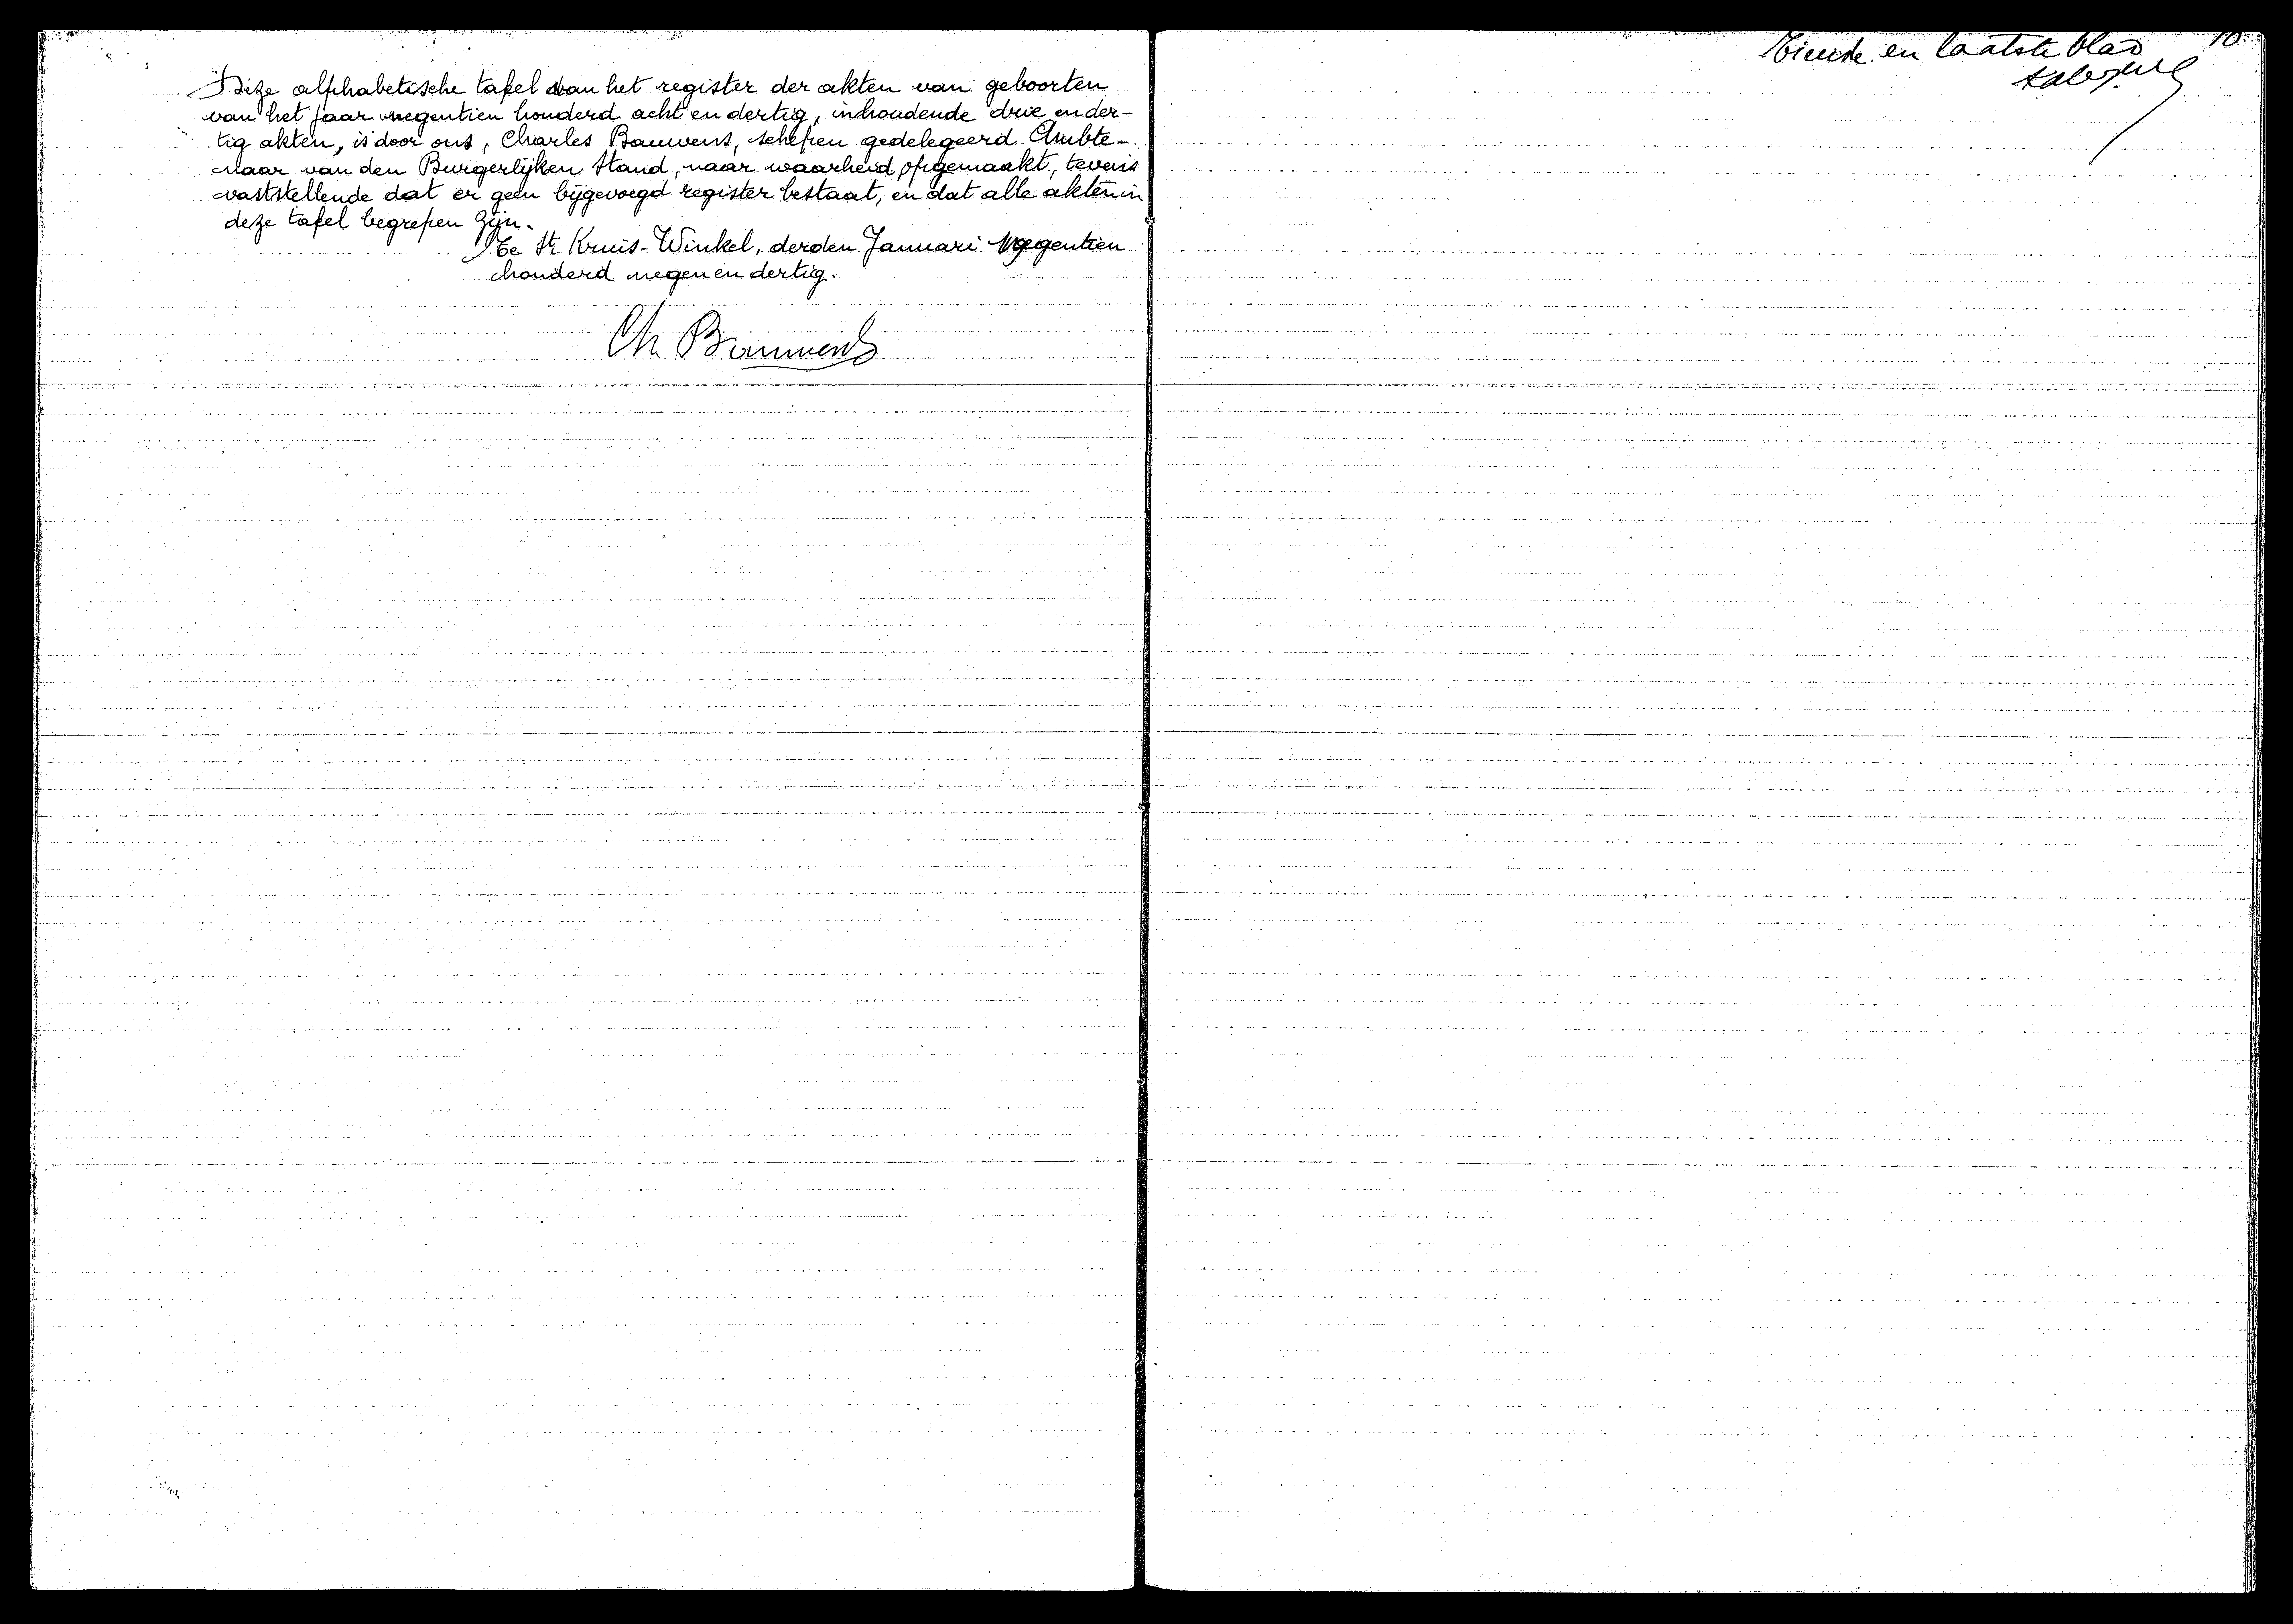 Deze alphabetische tafel van het register der akten van geboorten
van het jaar negentien honderd acht en dertig, inhoudende drie en der-
tig akten, is door ons, Charles Bauwens, schepen gedelegeerd Ambte-
naar van den Burgerlijken Stand, naar waarheid opgemaakt, tevens
vaststellende dat er geen bijgevoegd register bestaat, en dat alle akten in
deze tafel begrepen zijn.
Te St Kruis-Winkel, derden Januari negentien
honderd negen en dertig.
Ch. Bauwens
10
Tiende en laatste blad